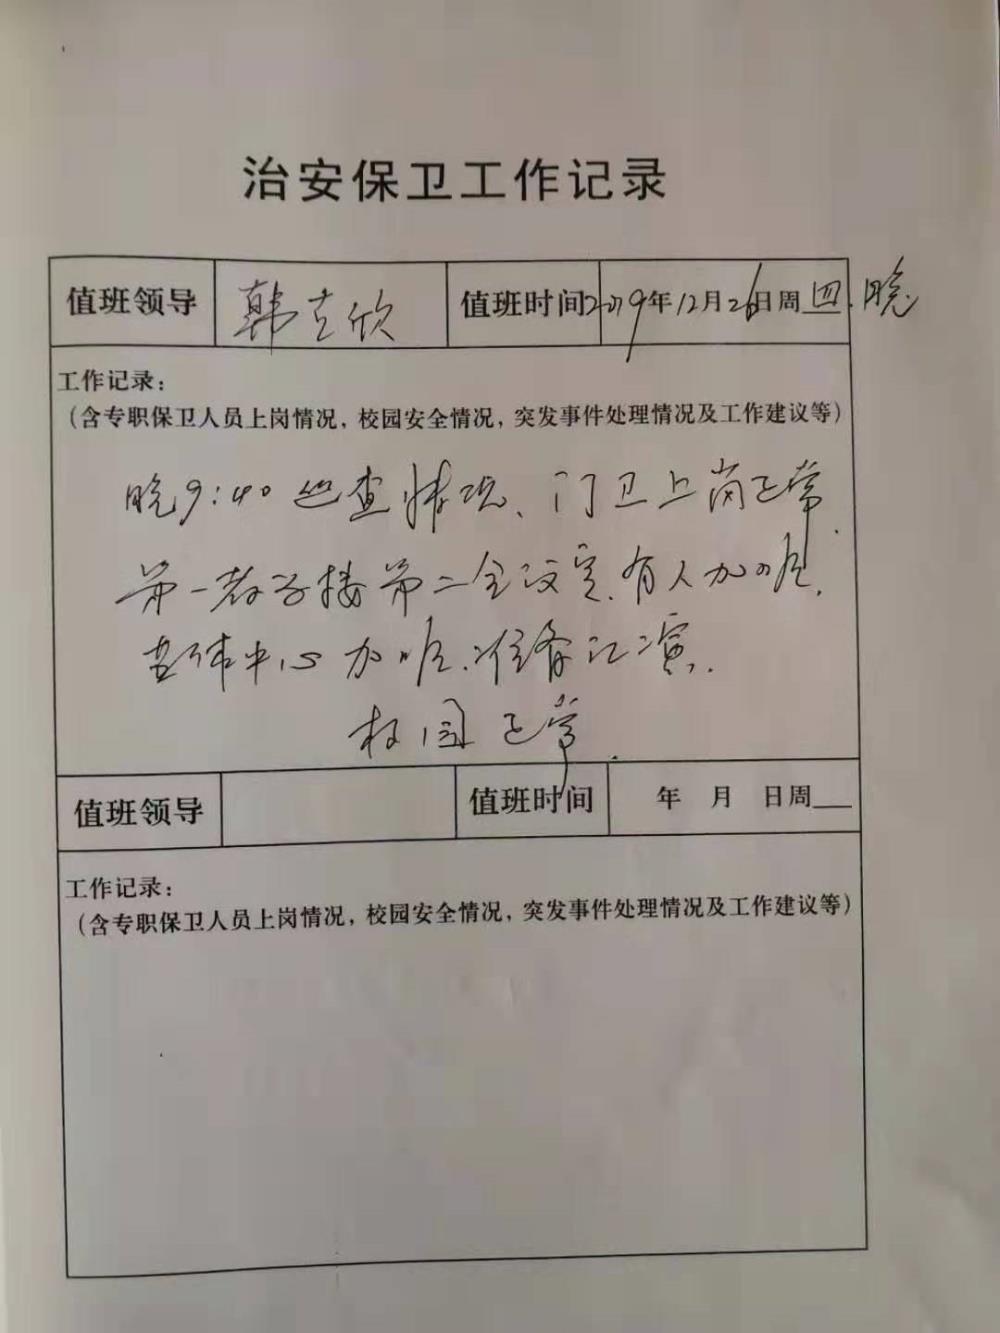 治安保卫工作记录
值班领导 韩克欣 值班时间 2019年12月26日周四.晚
工作记录：
（含专职保卫人员上岗情况，校园安全情况，突发事件处理情况及工作建议等）
晚9:40巡查情况、门卫上岗正常.
第一教学楼第二会议室.有人加班.
艺体中心加班.准备汇演.
校园正常.
值班领导 值班时间 年 月 日周
工作记录：
（含专职保卫人员上岗情况，校园安全情况，突发事件处理情况及工作建议等）